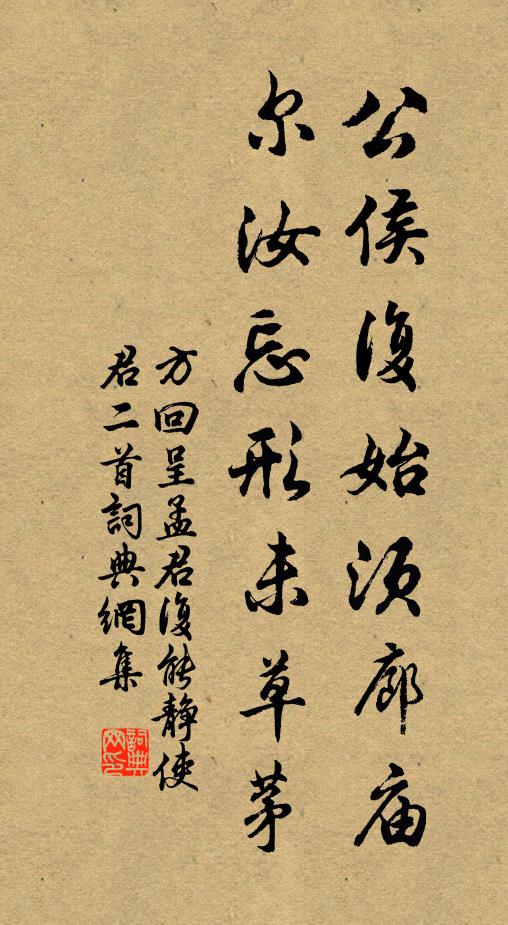 公侯復始須廊庙
尔汝忘形未草茅
方回呈孟君復能静使
君二首詞典網集
詞典網印